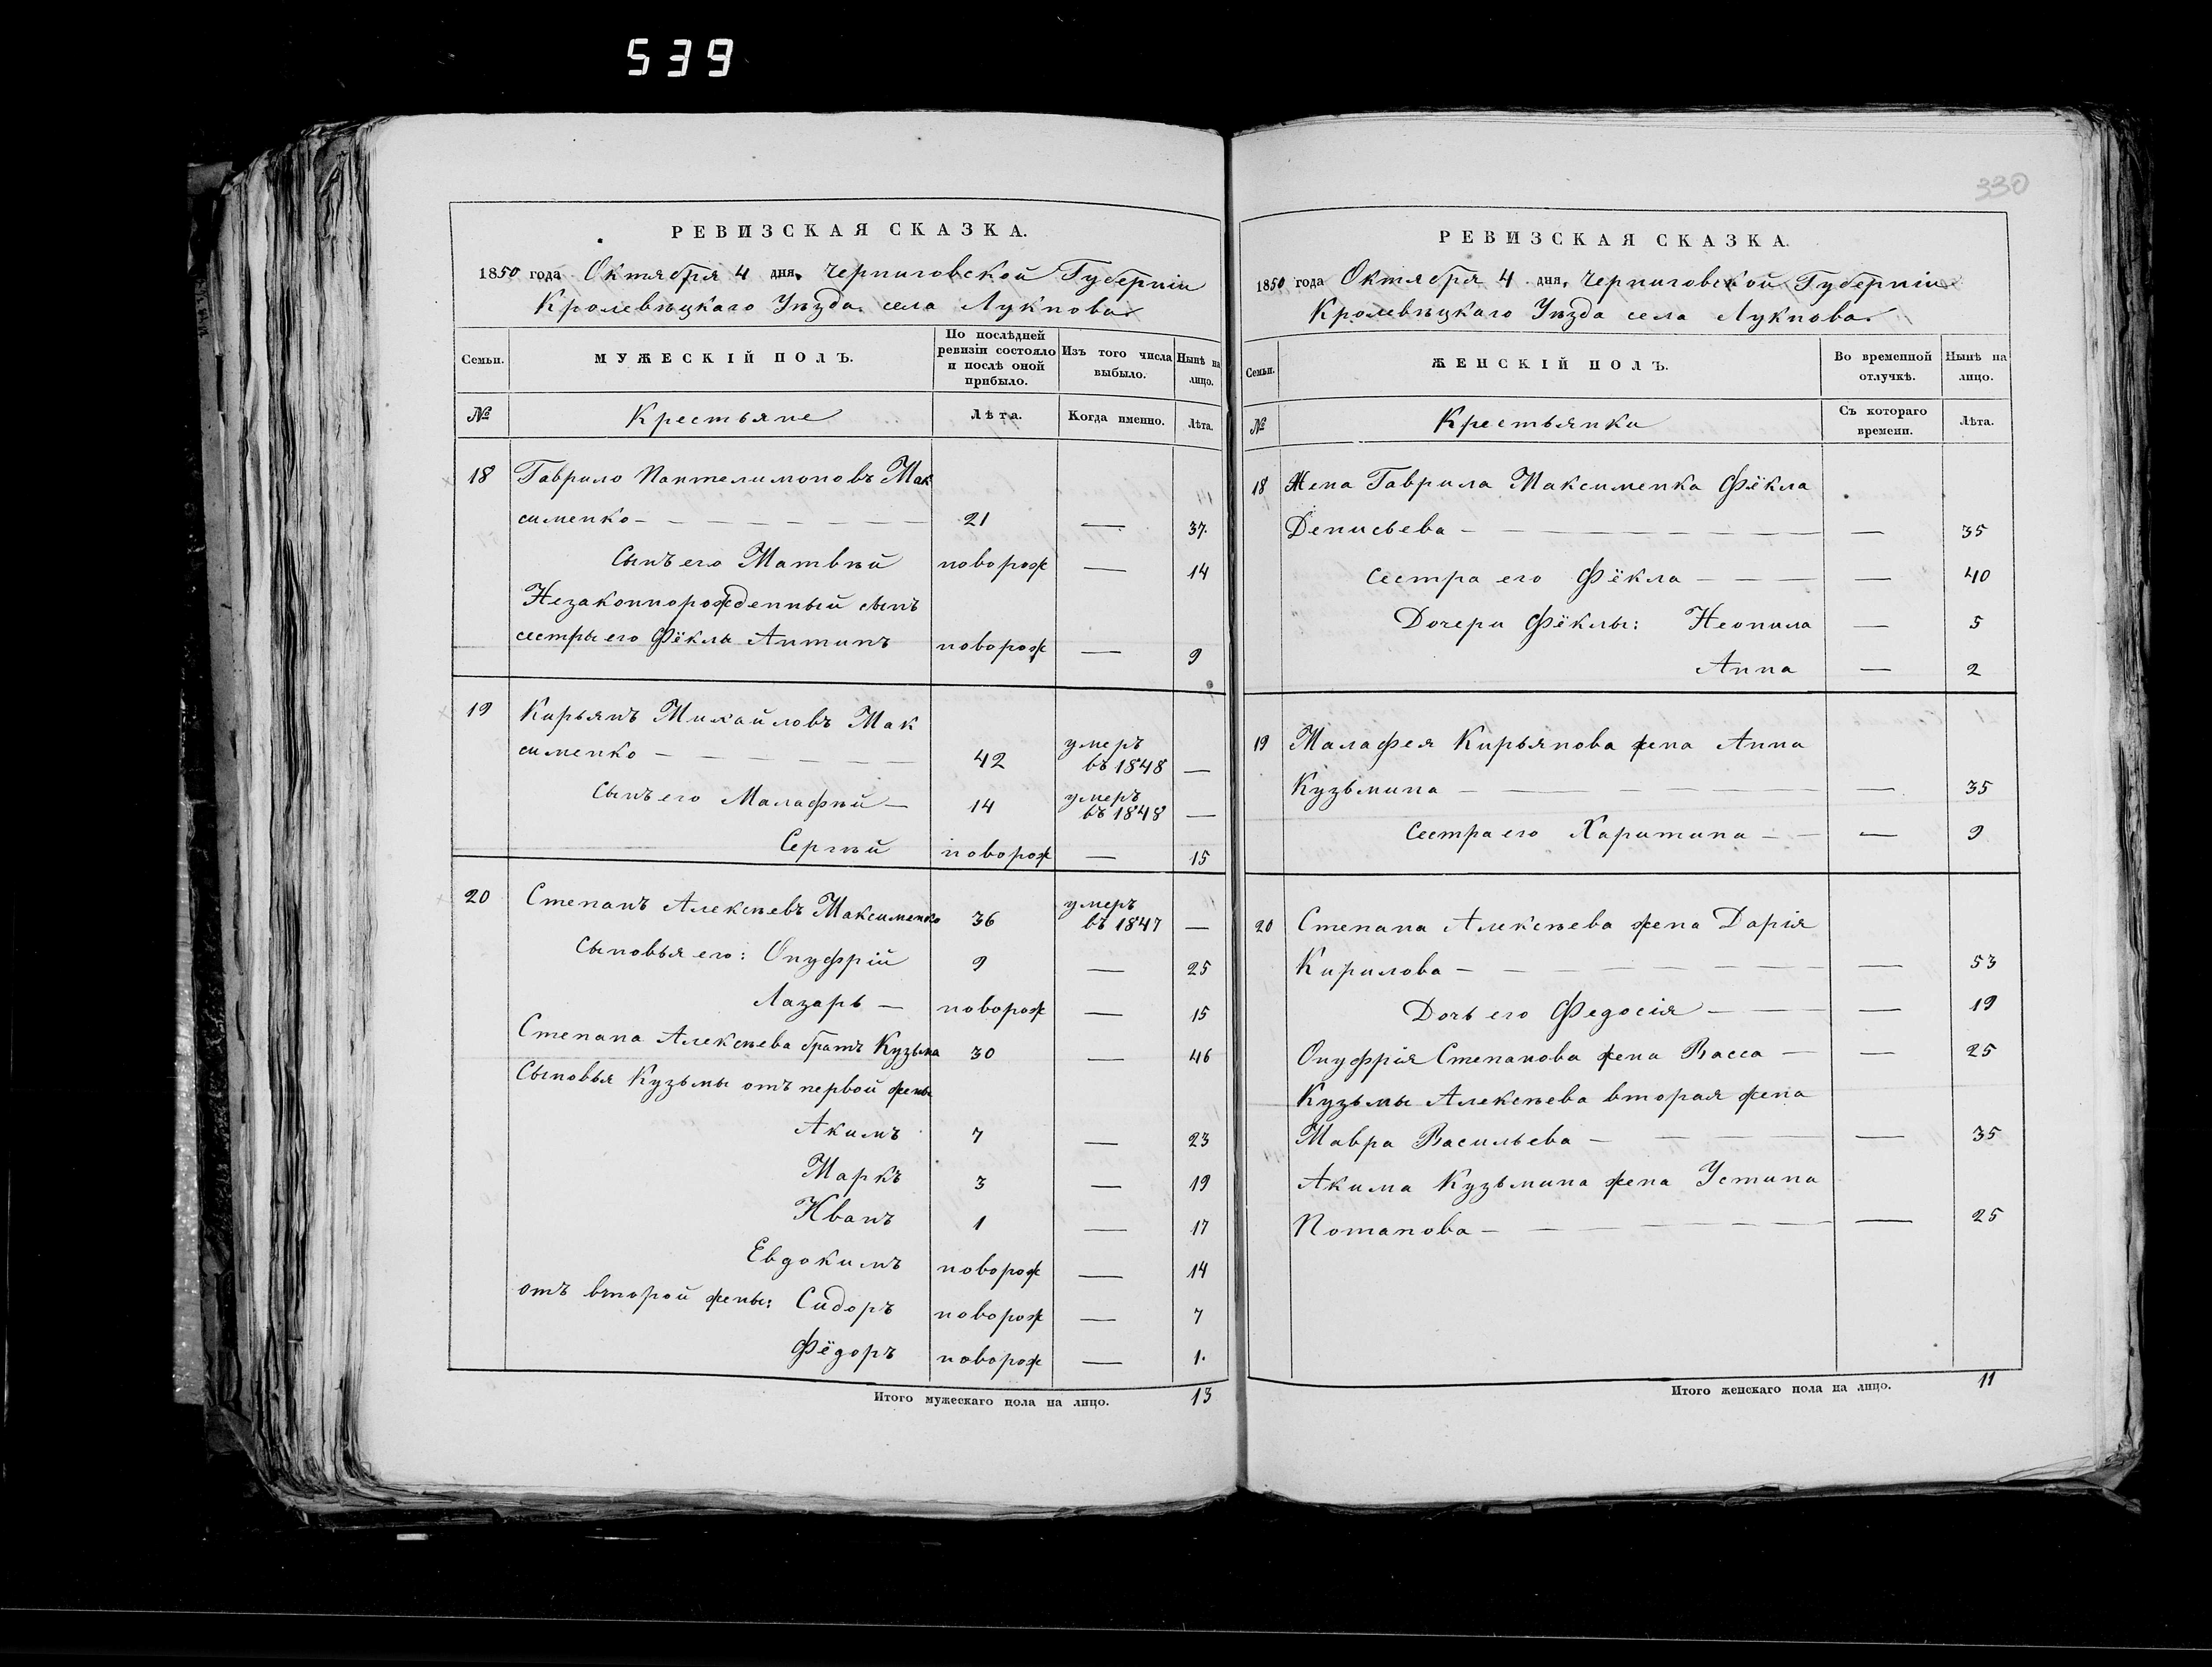 539
РЕВИЗСКАЯ СКАЗКА.
1850 года Октября 4 дня. Черниговской Губерніи
Кролевѣцкаго Уѣзда села Лукнова
Семьи.
МУЖЕСКІЙ ПОЛЪ.
По послѣдней ревизіи состояло и послѣ оной прибыло.
Изъ того числа выбыло.
Нынѣ на лицо.
№ Крестьяне Лѣта. Когда именно. Лѣта.
18 Гаврило Пантелимоновъ Мак
сименко — 21 — 37.
Сынъ его Матвѣй новорож — 14
Незаконнорожденный сынъ
сестры его Фёклы Антипъ новорож — 9
19 Кирьянъ Михайловъ Мак
сименко — 42 умеръ въ 1848 —
Сынъ его Малафѣй — 14 умеръ въ 1848 —
Сергѣй новорож — 15
20 Степанъ Алексѣевъ Максименко 36 умеръ въ 1847 —
Сыновья его: Онуфрій 9 — 25
Лазарь — новорож — 15
Степана Алексѣева братъ Кузьма 30 — 46
Сыновья Кузьмы отъ первой жены
Акимъ 7 — 23
Маркъ 3 — 19
Иванъ 1 — 17
Евдокимъ новорож — 14
отъ второй жены: Сидоръ новорож — 7
Фёдоръ новорож — 1.
Итого мужескаго пола на лицо. 13
330
РЕВИЗСКАЯ СКАЗКА.
1850 года Октября 4 дня. Черниговской Губерніи
Кролевѣцкаго Уѣзда села Лукнова
Семьи.
ЖЕНСКІЙ ПОЛЪ.
Во временной отлучкѣ.
Нынѣ на лицо.
№ Крестьянки Съ котораго времени. Лѣта.
18 Жена Гаврила Максименка Фёкла
Денисьева — — 35
Сестра его Фёкла — — 40
Дочери Фёклы: Неонила — 5
Анна — 2
19 Малафея Кирьянова жена Анна
Кузьмина — — 35
Сестра его Харитина — — 9
20 Степана Алексѣева жена Дарія
Кирилова — — 53
Дочь его Федосія — — 19
Онуфрія Степанова жена Васса — — 25
Кузьмы Алексѣева вторая жена
Мавра Васильева — — 35
Акима Кузьмина жена Устина
Потапова — — 25
Итого женскаго пола на лицо. 11